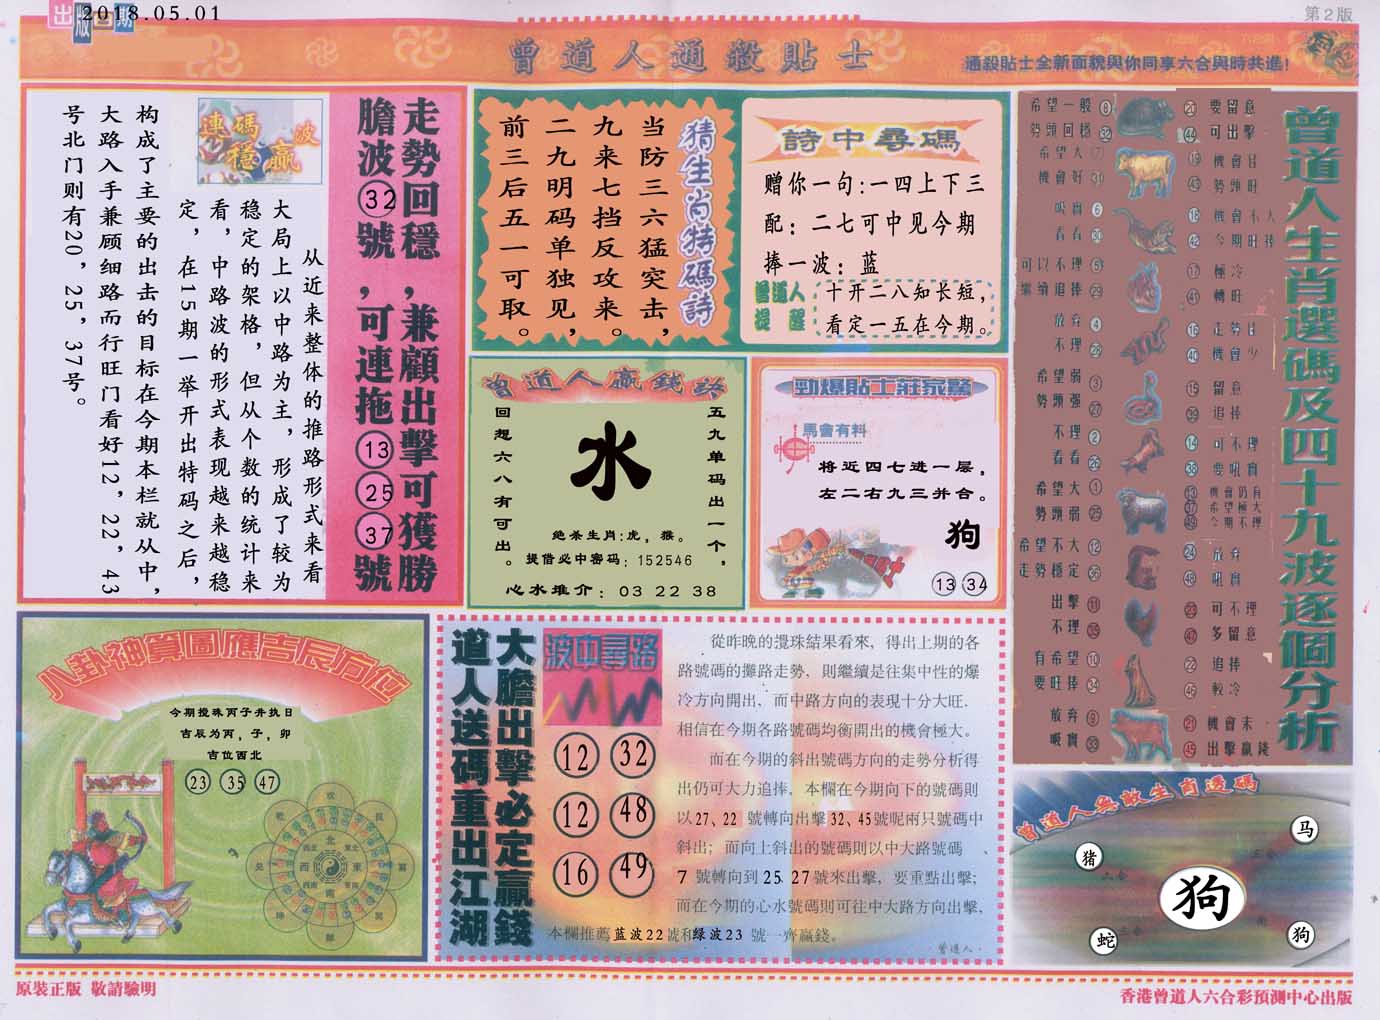 出版日期
2018.05.01
第2版
曾道人通殺貼士
通殺貼士全新面貌與你同享六合與時共進!
走勢回穩,兼顧出擊可獲勝
膽波32號,可連拖13 25 37號
連碼穩赢波
从近来整体的推路形式来看
大局上以中路为主,形成了较为
稳定的架格,但从个数的统计来
看,中路波的形式表现越来越稳
定,在15期一举开出特码之后,
构成了主要的出击的目标在今期本栏就从中,
大路入手兼顾细路而行旺门看好12,22,43
号北门则有20,25,37号。
猜生肖特碼詩
当防三六猛突击,
九来七挡反攻来。
二九明码单独见,
前三后五一可取。
詩中尋碼
赠你一句:一四上下三
配:二七可中见今期
捧一波:蓝
曾道人
提醒
十开二八知长短,
看定一五在今期。
曾道人贏錢詩
五九单码出一个,
回想六八有可出。
水
绝杀生肖:虎,猴。
提借必中密码:152546
心水推介:03 22 38
勁爆貼士莊家驚
馬會有料
将近四七进一层,
左二右九三并合。
狗
13 34
曾道人生肖選碼及四十九波逐個分析
希望一般 8
勢頭回穩 32
20 要留意
44 可出擊
希望大 7
機會好 31
19 機會佳
43 勢頭旺
吸實 6
看看 30
18 機會不大
42 今期旺捧
可以不理 5
繼續追捧 29
17 極冷
41 轉旺
放弃 4
不理 28
16 走勢佳
40 機會少
希望弱 3
勢頭强 27
15 留意
39 追捧
不理 2
看看 26
14 可不理
38 要吼實
希望大 1
勢頭弱 25
13 機會仍有
37 希望極大
49 今期不理
希望不大 12
走勢穩定 36
24 放弃
48 吼實
出擊 11
不理 35
23 可不理
47 多留意
有希望 10
要旺捧 34
22 追捧
46 較冷
放弃 9
吸實 33
21 機會末
45 出擊赢錢
八卦神算圖應吉辰方位
今期搅珠丙子井执日
吉辰为丙,子,卯
吉位西北
23 35 47
北
東
南
西
大膽出擊必定贏錢
道人送碼重出江湖
波中尋路
12 32
12 48
16 49
從昨晚的攪珠結果看來,得出上期的各
路號碼的攤路走勢,則繼續是往集中性的爆
冷方向開出,而中路方向的表現十分大旺.
相信在今期各路號碼均衡開出的機會極大。
而在今期的斜出號碼方向的走勢分析得
出仍可大力追捧,本欄在今期向下的號碼則
以27、22 號轉向出擊32、45號呢兩只號碼中
斜出;而向上斜出的號碼則以中大路號碼、
7 號轉向到25 27號來出擊,要重點出擊;
而在今期的心水號碼則可往中大路方向出擊,
本欄推薦蓝波22號和绿波23 號一齊贏錢。
曾道人.
曾道人無敵生肖透碼
猪
马
狗
蛇
狗
原裝正版 敬請驗明
香港曾道人六合彩預測中心出版